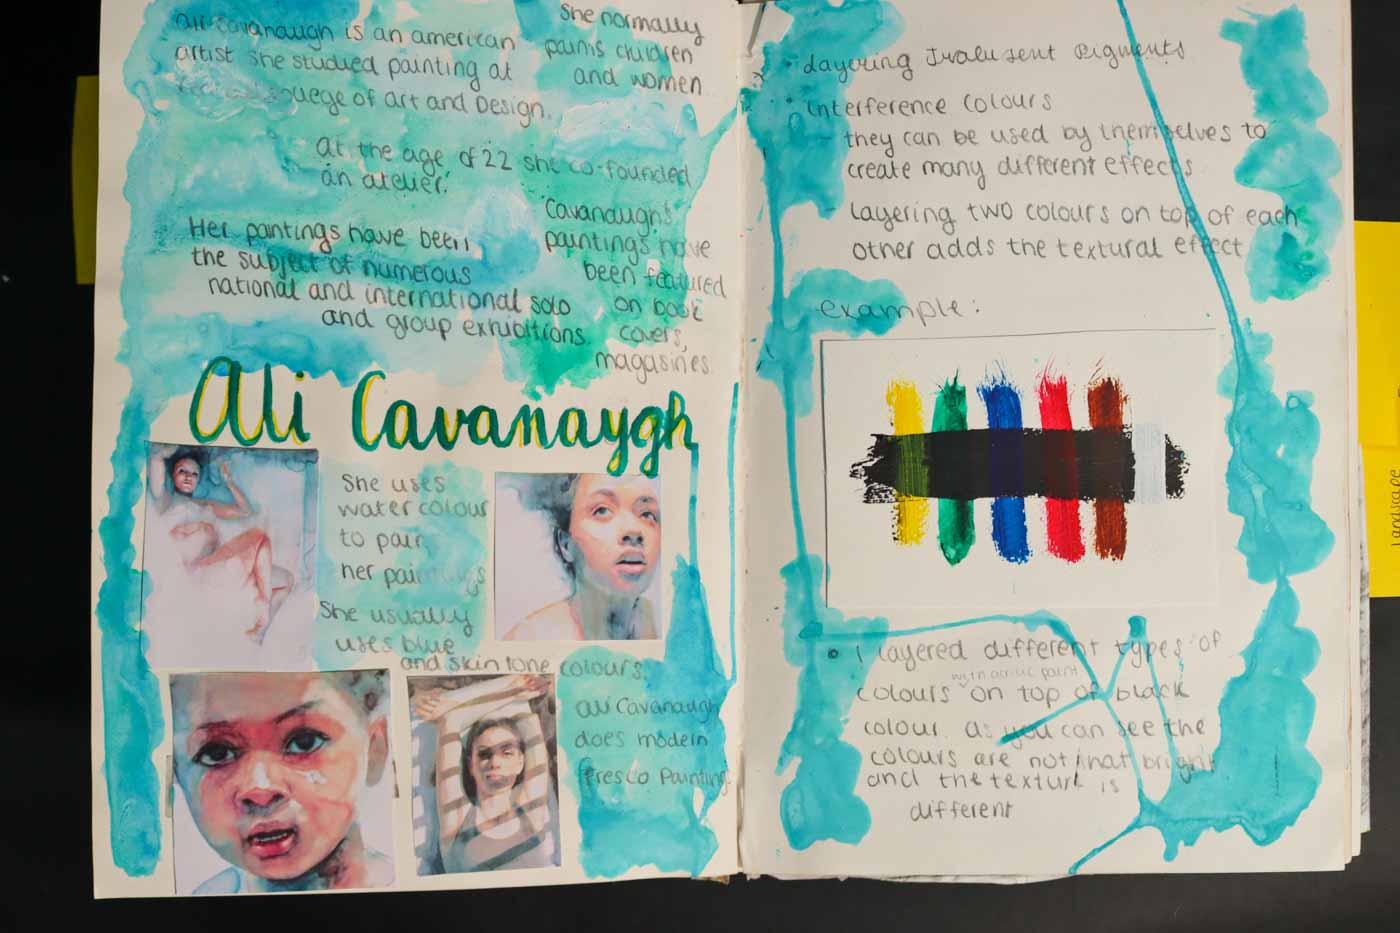 Ali Cavanaugh is an american
artist she studied painting at
of Art and Design.
She normally
paints children
and women
at the age of 22 she co-founded
an atelier.
Her paintings have been
the subject of numerous
national and international solo
and group exhibitions.
Cavanaugh's
paintings have
been featured
on book
covers,
magasines.
Ali Cavanaygh
She uses
water colour
to
her paintings
She usually
uses blue
and skin tone colours.
Ali Cavanaugh
does modern
fresco Painting.
layering Pigments
interference colours
- they can be used by themselves to
create many different effects
- layering two colours on top of each
other adds the textural effect
example:
• I layered different types of
with acrylic paint
colours on top of black
colour. as you can see the
colours are not that bright
and the texture is
different
landscape